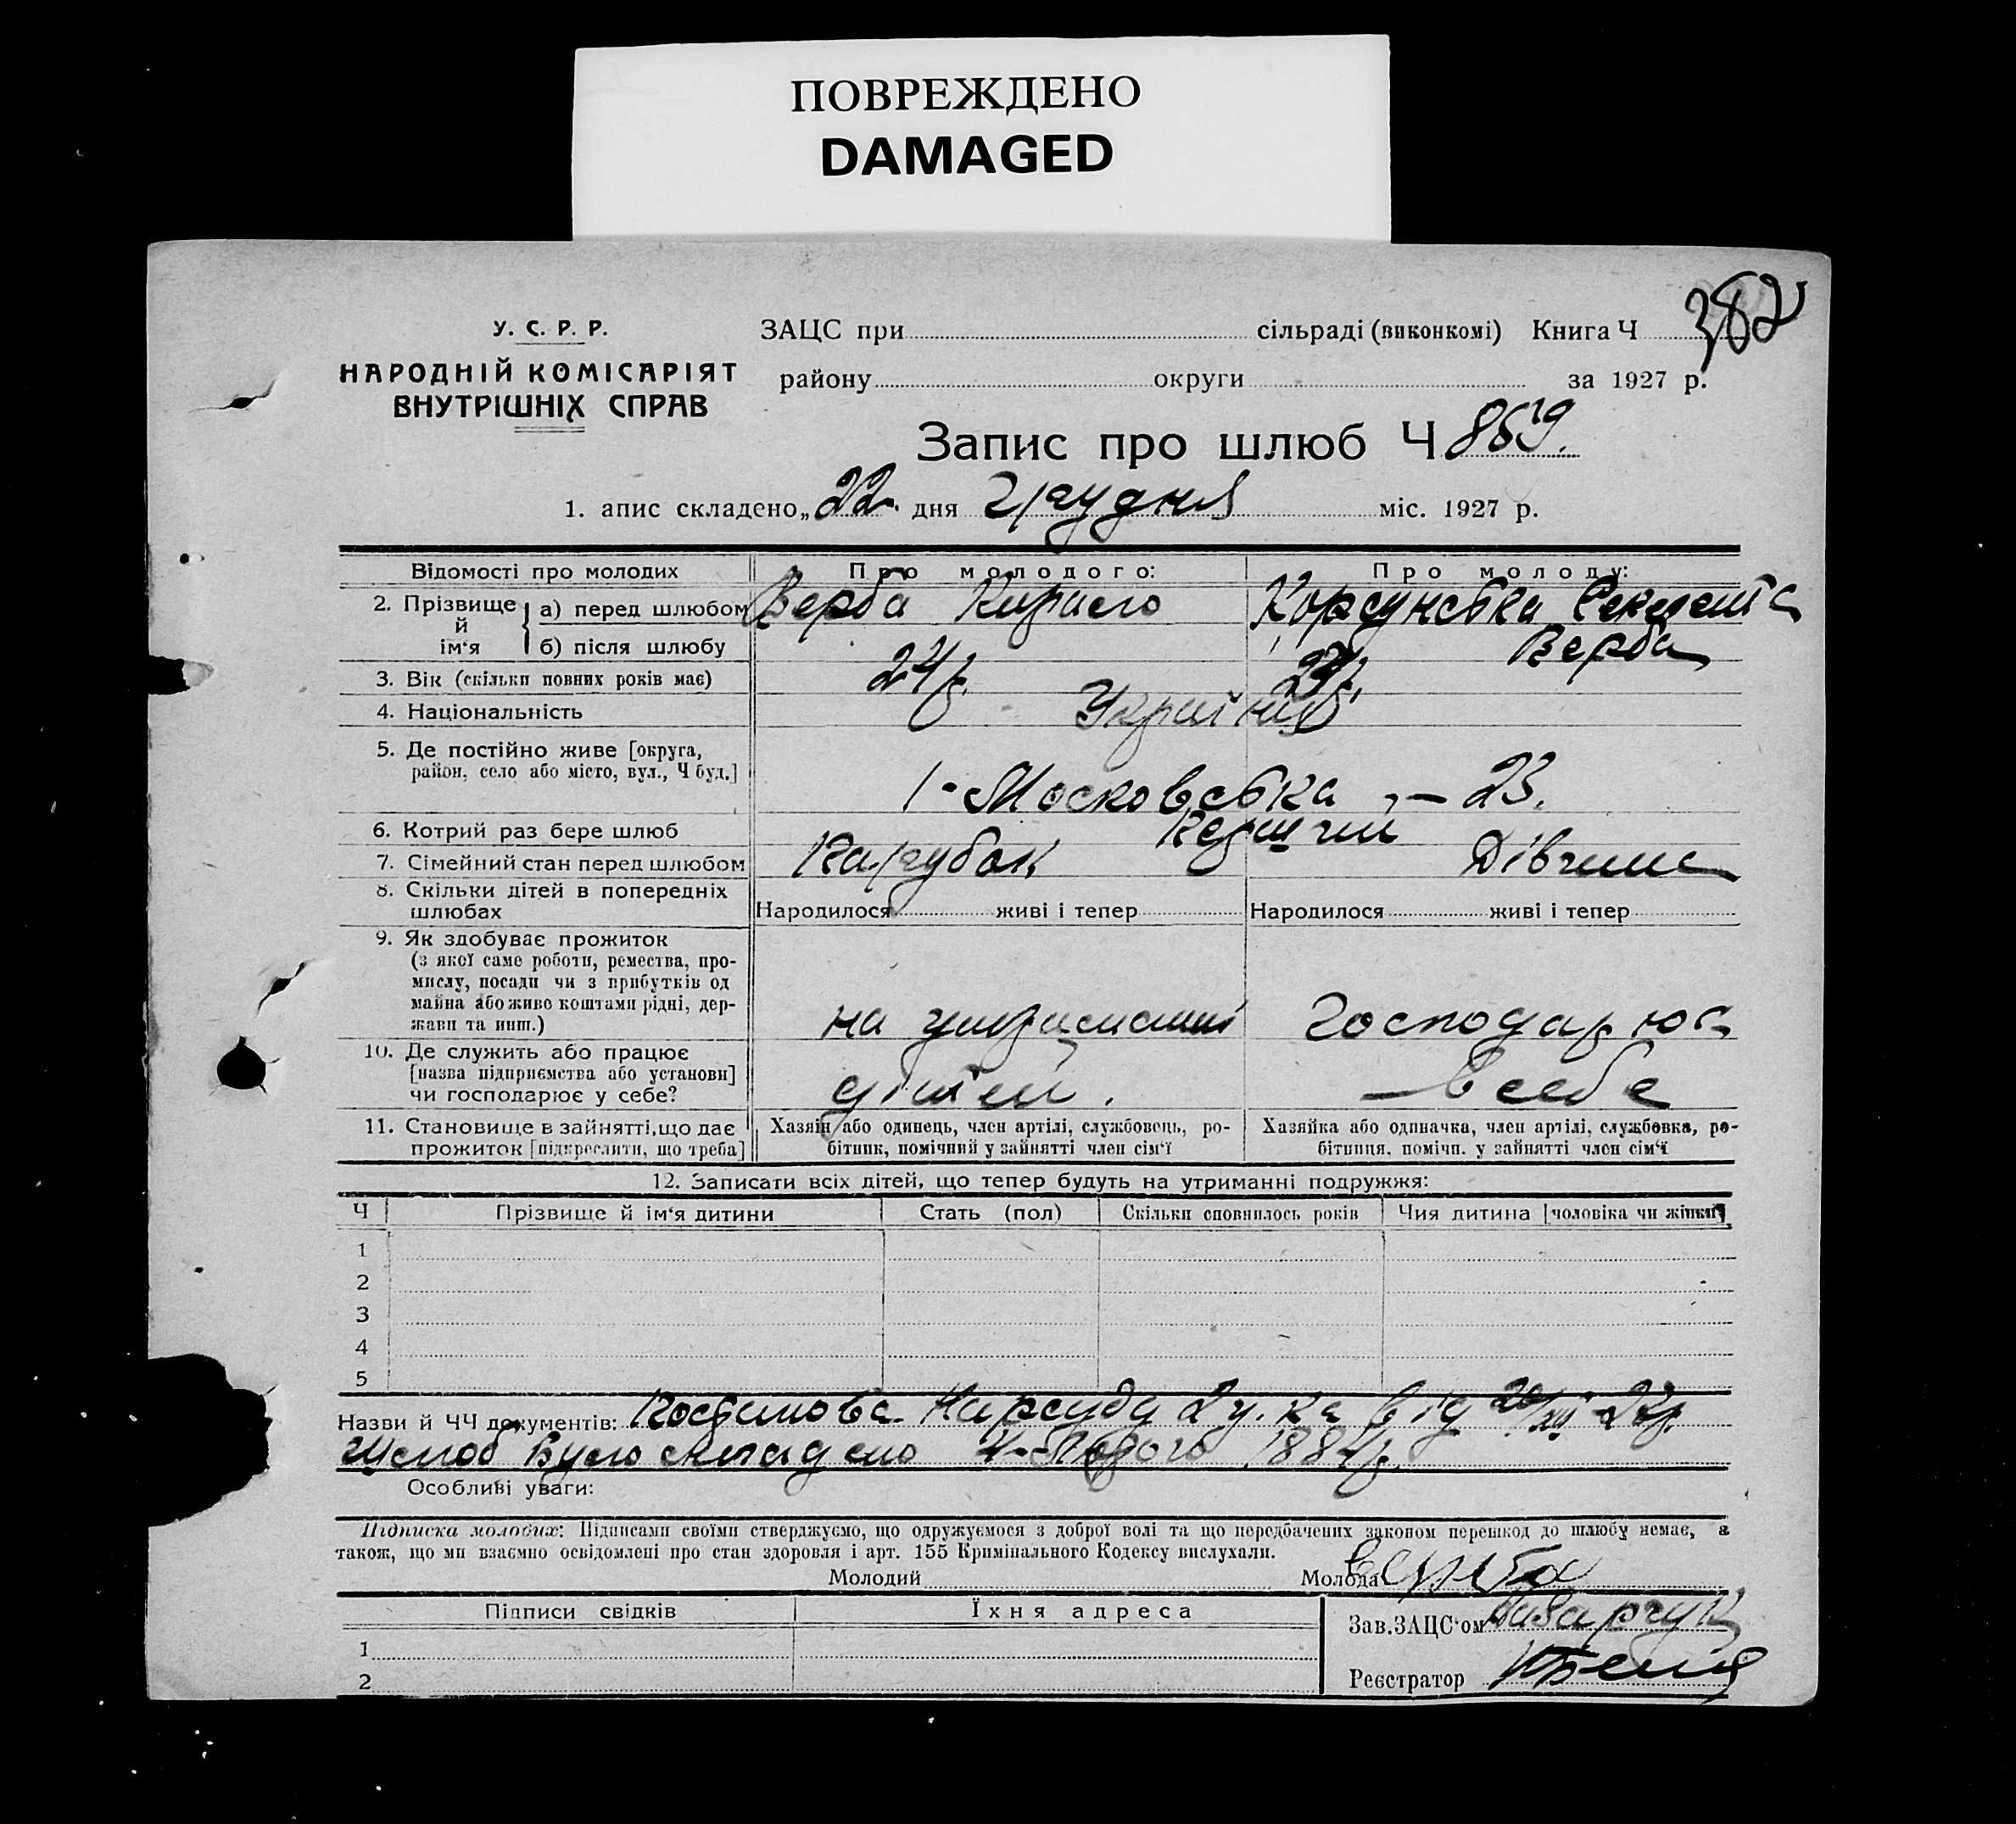 ПОВРЕЖДЕНО
DAMAGED
382
У. С. Р. Р.
НАРОДНІЙ КОМІСАРІЯТ
ВНУТРІШНІХ СПРАВ
ЗАЦС при сільраді (виконкомі) Книга Ч
району округи за 1927 р.
Запис про шлюб Ч 8659.
1. апис складено „22 дня Грудня міс. 1927 р.
Відомості про молодих Про молодого: Про молоду:
2. Прізвище й ім'я а) перед шлюбом Верба Кирило Корсунська
б) після шлюбу Верба
3. Вік (скільки повних років має) 24р.
4. Національність Україн
5. Де постійно живе [округа,
район, село або місто, вул., Ч буд.]
1-Московська — 23.
6. Котрий раз бере шлюб Перший
7. Сімейний стан перед шлюбом Парубок Дівчина
8. Скільки дітей в попередніх
шлюбах Народилося живі і тепер Народилося живі і тепер
9. Як здобуває прожиток
(з якої саме роботи, ремества, про-
мислу, посади чи з прибутків од
майна або живе коштами рідні, дер-
жави та инш.) на утриманні Господарює
10. Де служить або працює
[назва підприємства або установи]
чи господарює у себе? дітей. — в себе
11. Становище в зайнятті, що дає Хазяїн або одинець, член артілі, службовець, ро- Хазяйка або одиначка, член артілі, службовка, ро-
прожиток [підкреслити, що треба] бітник, помічний у зайнятті член сім'ї бітниця, помічн. у зайнятті член сім'ї
12. Записати всіх дітей, що тепер будуть на утриманні подружжя:
Ч Прізвище й ім'я дитини Стать (пол) Скільки сповнилось років Чия дитина [чоловіка чи жінки]
1
2
3
4
5
Назви й ЧЧ документів: Постанова Нарсуду 2 у. ка від 20/XII-27р.
Шлюб Було складено 4-Лютого 1884р.
Особливі уваги:
Підписка молодих: Підписами своїми стверджуємо, що одружуємося з доброї волі та що передбачених законом перешкод до шлюбу немає, а
також, що ми взаємно освідомлені про стан здоровля і арт. 155 Кримінального Кодексу вислухали.
Молодий Молода Верба
Підписи свідків Їхня адреса
Зав. ЗАЦС'ом
1
Реєстратор
2